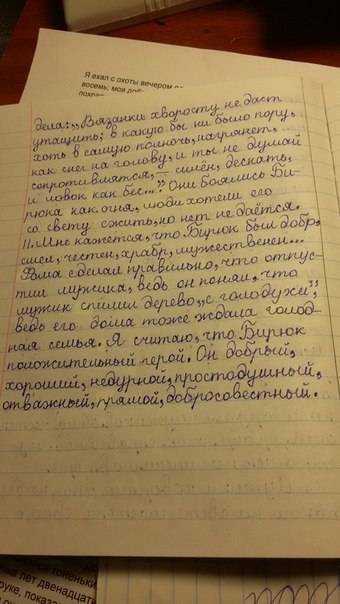 Я ехал с охоты вечером
восемь; моя
дела: „Вязанки хворосту не даст
утащить; в какую бы ни было пору,
хоть в самую полночь, нагрянет,
как снег на голову, и ты не думай
сопротивляться, – силён, дескать,
и ловок как бес...” Они боялись Би-
рюка как огня, люди хотели его
со свету сжить, но нет не даётся.
11. Мне кажется, что Бирюк был добр,
смел, честен, храбр, мужественен...
Фома сделал правильно, что отпус-
тил мужика, ведь он понял, что
мужик спилил дерево „с голодухи”,
ведь его дома тоже ждала голод-
ная семья. Я считаю, что Бирюк
положительный герой. Он добрый,
хороший, недурной, простодушный,
отважный, прямой, добросовестный.
лет двенадцати
руке, показа